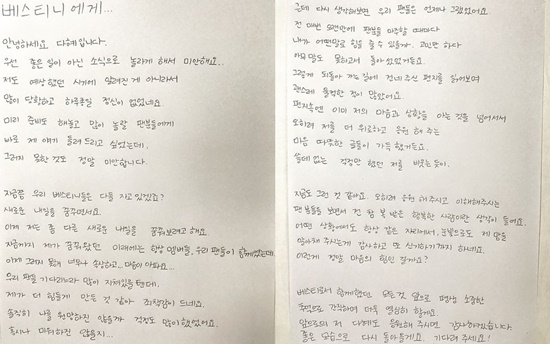 베스티니에게...
안녕하세요 다혜입니다.
우선 좋은 일이 아닌 소식으로 놀라게 해서 미안해요..
저도 예상했던 시기에 알려진 게 아니라서
많이 당황하고 하루종일 정신이 없었네요
미리 준비도 해놓고 많이 놀랄 팬분들에게
바로 제 얘기 들려드리고 싶었는데,
그러지 못한 것도 정말 미안합니다.
지금쯤 우리 베스티니들은 다들 자고 있겠죠?
새로운 내일을 꿈꾸면서요.
이제 저는 좀 다른 새로운 내일을 꿈꿔보려고 해요.
지금까지 제가 꿈꿔왔던 미래에는 항상 멤버들, 우리 팬들이 함께였는데
이제 그러지 못해 너무나 속상하고... 마음이 아파요...
우리 팬들 기다리느라 많이 지쳐있을 텐데,
제가 더 힘들게 만든 것 같아 죄책감이 드네요.
솔직히 나를 원망하진 않을까 걱정도 많이 했었어요.
혹시나 미워하진 않을지...
근데 다시 생각해보면 우리 팬들은 언제나 그랬었어요.
전 매번 오랜만에 팬분들 마주할 때마다
내가 어떤말로 힘을 줄 수 있을까.. 고민만 하다
아무 말도 못하고서 돌아섰었거든요.
그렇게 되돌아 가는 길에 건네주신 편지를 읽어보며
괜스레 울컥한 적이 많았어요.
편지속엔 이미 저의 마음과 상황을 아는 것을 넘어서서
오히려 저를 더 위로하고 응원해 주는
마음 따뜻한 글들이 가득했거든요.
쓸데없는 걱정만 했던 저를 비웃는 듯이.
지금도 그런 것 같아요. 오히려 응원해주시고 이해해주시는
팬분들을 보면서 전 참 복 많은 행복한 사람이란 생각이 들어요.
어떤 상황에서도 항상 같은 자리에서, 눈빛으로도 제 맘을
알아봐 주시는게 감사하고 또 신기하기까지 하네요.
이런게 정말 마음의 힘인 걸까요?
베스티로서 함께했던 모든 것 앞으로 평생 소중한
추억으로 간직하며 더욱 열심히 할게요.
앞으로의 저 다혜도 응원해 주시면 감사하겠습니다.
좋은 모습으로 다시 돌아올게요. 기다려주세요!